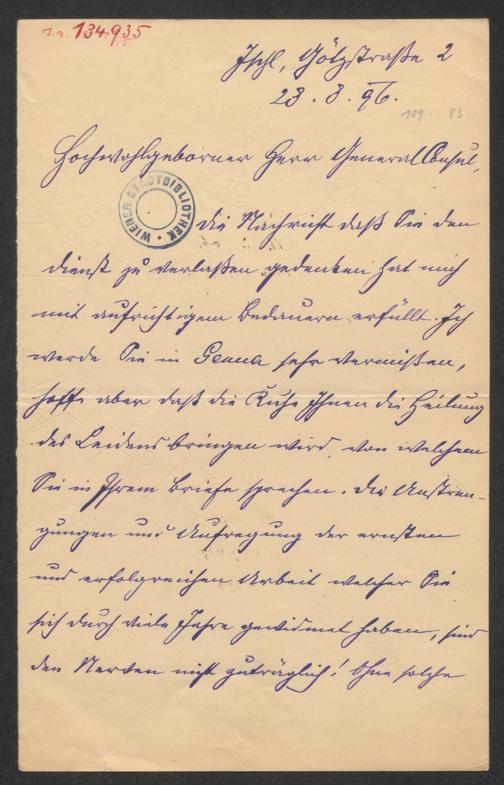 J.N. 134935
Ischl, Götzstraße 2
23. 8. 96.
109. 83
Hochwohlgeborner Herr General Consul,
WIENER STADTBIBLIOTHEK
die Nachricht daß Sie den
Dienst zu verlaßen gedenken hat mich
mit aufrichtigem Bedauern erfüllt. Ich
werde Sie in Genua sehr vermißen,
hoffe aber daß die Ruhe Ihnen die Heilung
des Leidens bringen wird, von welchem
Sie in Ihrem Briefe sprechen. Die Anstren-
gungen und Aufregung der ernsten
und erfolgreichen Arbeit welcher Sie
sich durch viele Jahre gewidmet haben, sind
den Nerven nicht zuträglich! Ohne solche